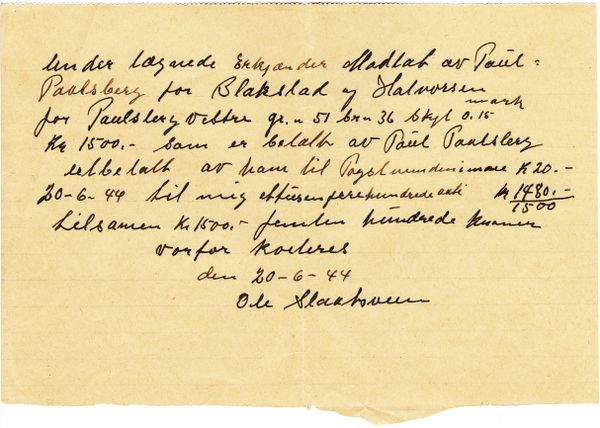 Under tegnede Erkjænder Modtat av Paul-
Paulsberg for Blakstad og Halvorsen
for Paulsberg Vestre gr.n 51 br.n 36 Skyl 0.15 mark
Kr 1500.- som er betalt av Paul Paulsberg
utbetalt av ham til Kr 20.-
20-6-44 til mig ettusenfirehundrede otti Kr 1480.-
1500
tilsamen Kr 1500.- femten hundrede kroner
vorfor kviteres
den 20-6-44
Ole Slaatsveen